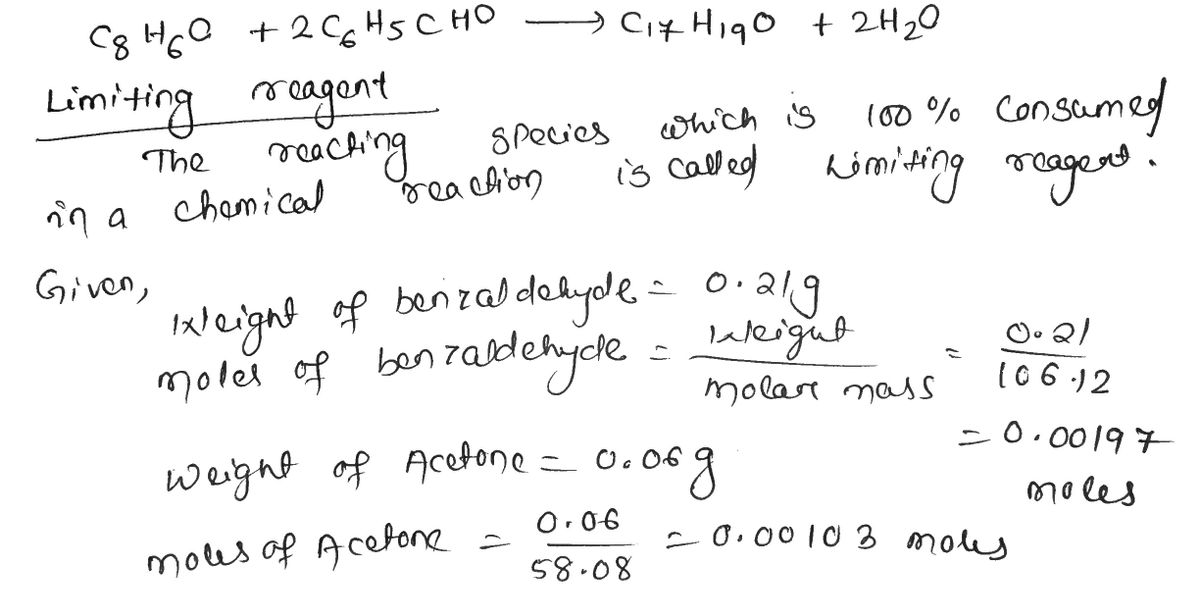 C8H6O + 2C6H5CHO ⟶ C17H19O + 2H2O
Limiting reagent
The reacting species which is 100% consumed
in a chemical reaction is called Limiting reagent.
Given,
Weight of benzaldehyde = 0.21g
moles of benzaldehyde = Weight / molar mass = 0.21 / 106.12
= 0.00197
moles
Weight of Acetone = 0.06g
moles of Acetone = 0.06 / 58.08 = 0.00103 moles